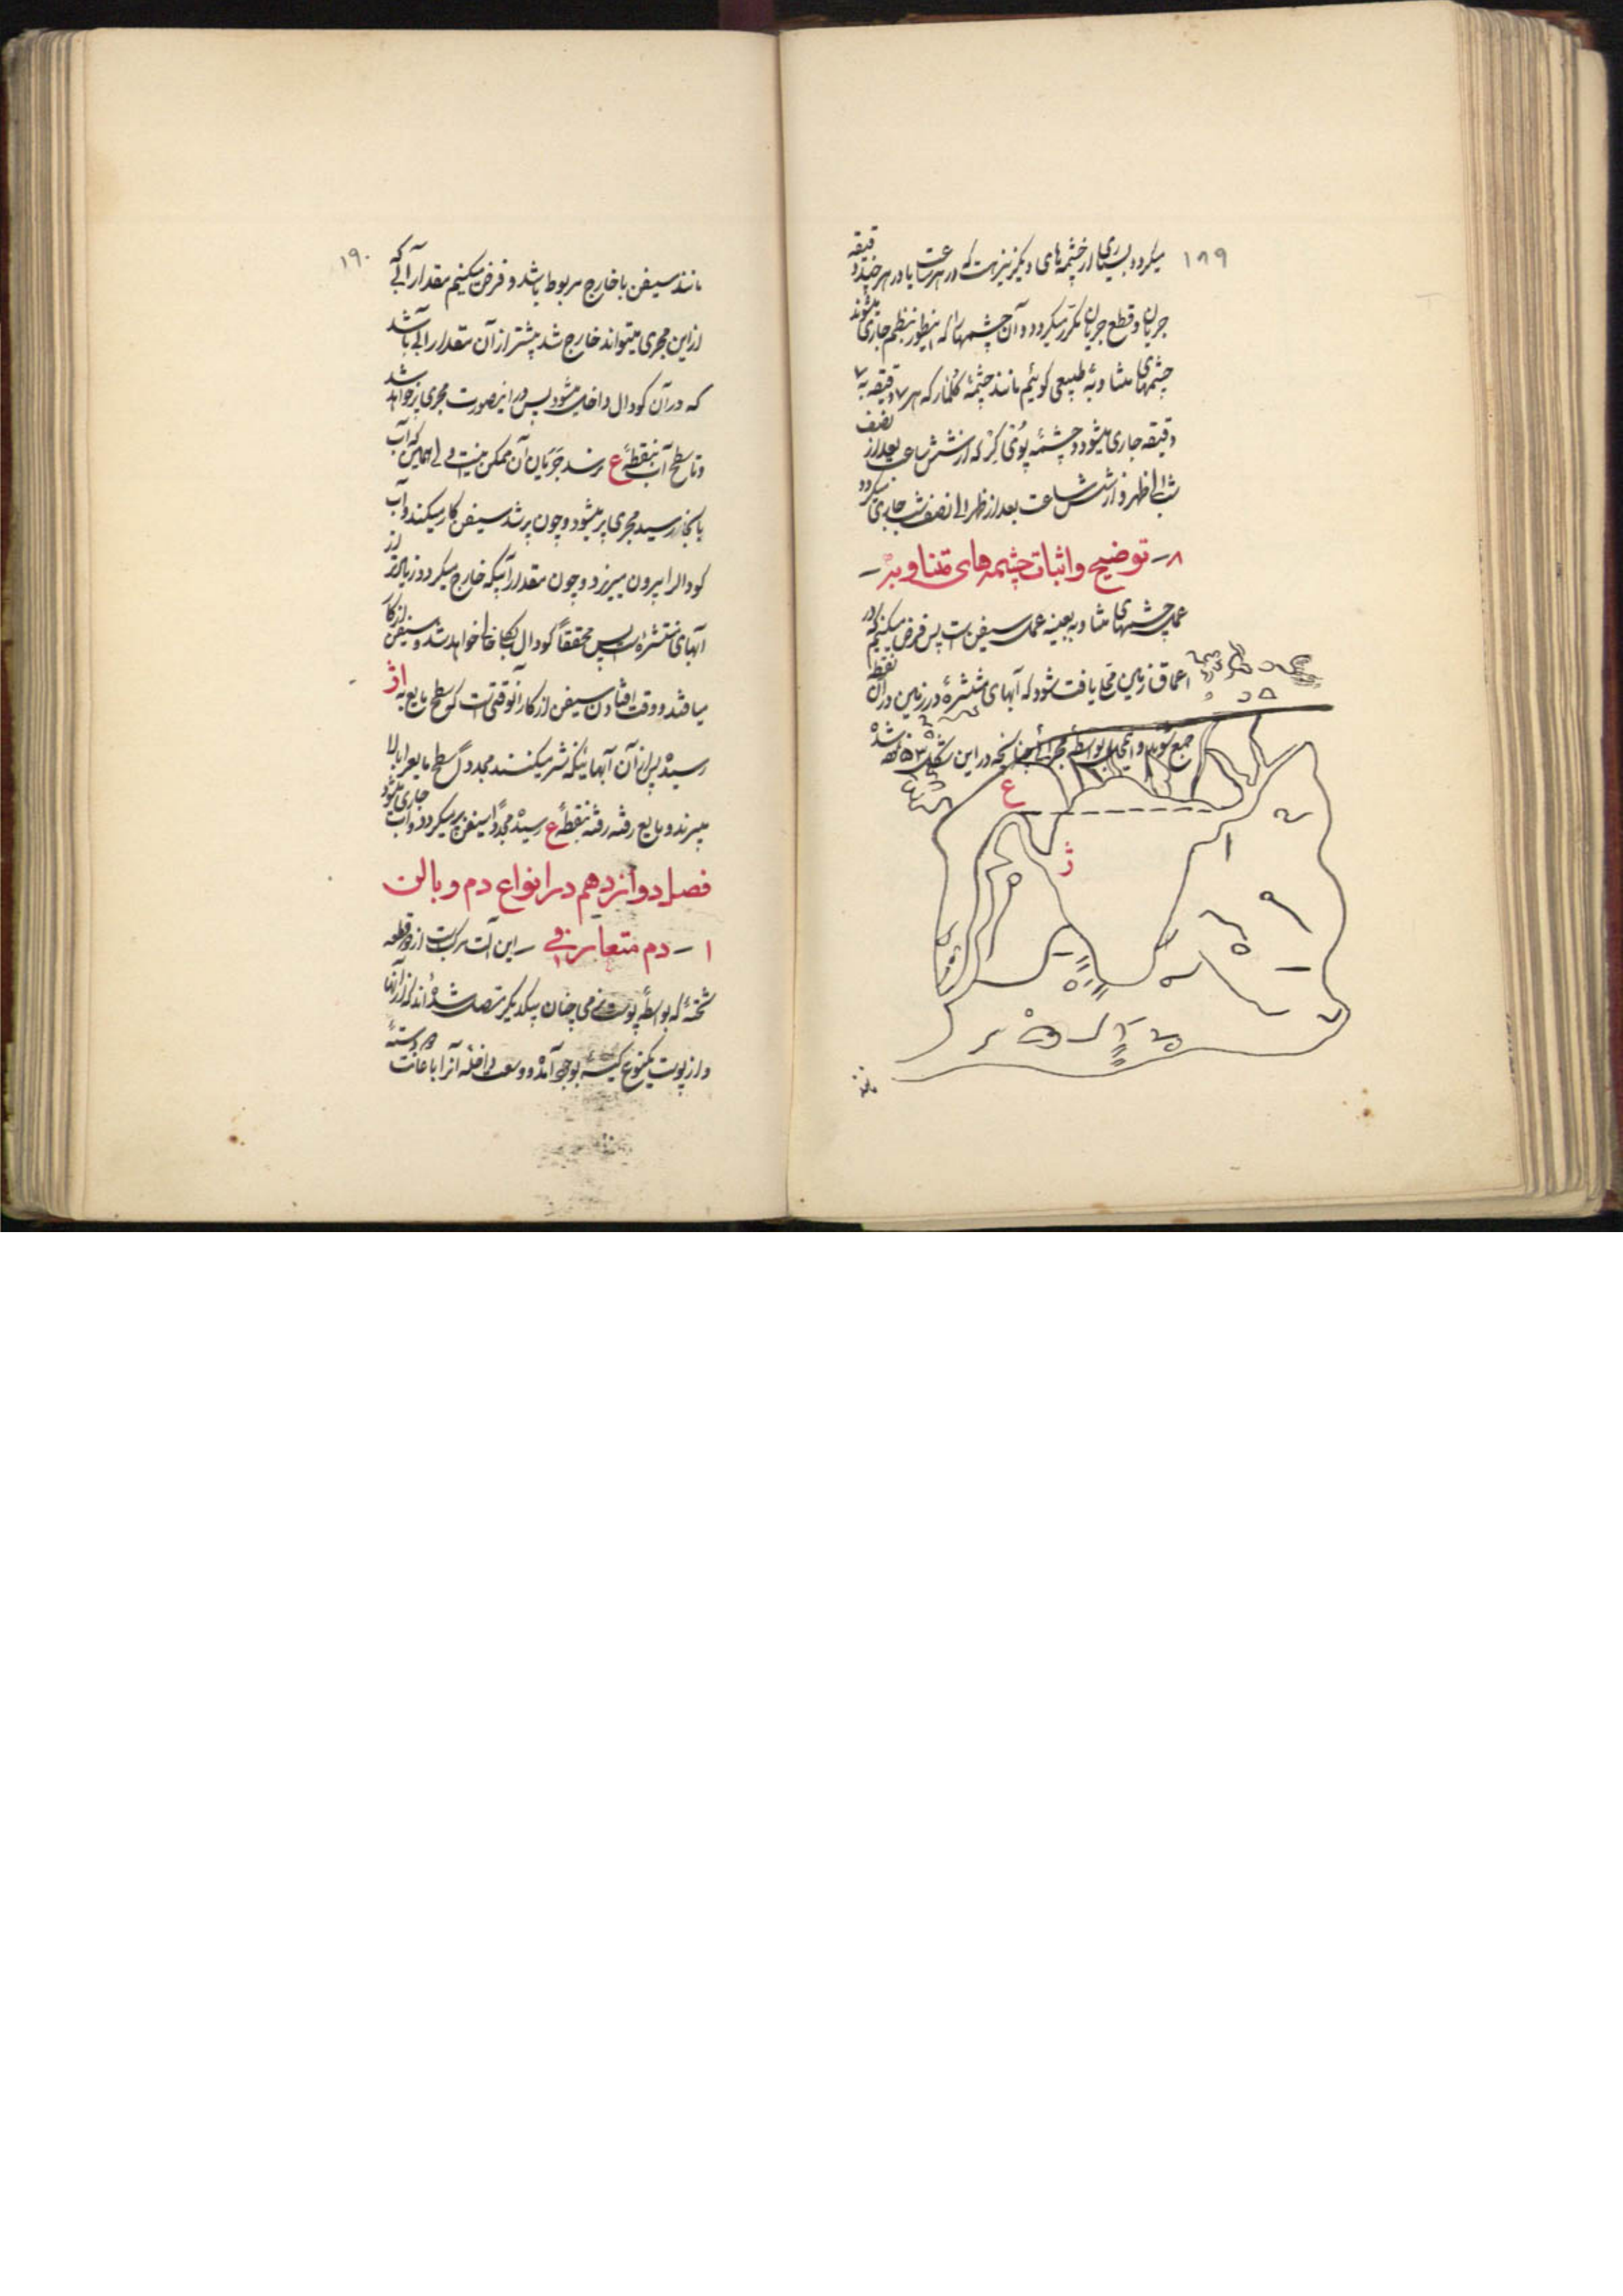 ۱۸۹
میکردد و بسیاری از چشمه های دیکر نیز هست که در هر ساعت یا در هر چند دقیقه
جریان و قطع جریان مکرر میکردد و آن چشمهائیرا که اینطور بنظم جاری میشوند
چشمهای متناوبهٔ طبیعی کوئیم مانند چشمهٔ کلمار که هر ۷ دقیقه به ۷
دقیقه جاری میشود و چشمه که از شش ساعت بعد از نصف
شب الی ظهر و از شش ساعت بعد از ظهر الی نصف شب جاری میکردد
۸ - توضیح و اثبات چشمه های متناوبه -
عمل چشمهای متناوبه بعینه عمل سیفن است پس فرض میکنیم که در
اعماق زمین محلی یافت شود که آبهای منتشرهٔ در زمین در آن نقطه
جمع شوند و انمحل بواسطهٔ مجرائی چنانکه در این شکل ۵۳ شده
ع
ژ
مانند
۱۹۰
مانند سیفن با خارج مربوط باشد و فرض میکنیم مقدار آبی که
از این مجری میتواند خارج شد بیشتر از آن مقدار آبی باشد
که در آن کودال داخل میشود پس در اینصورت مجری پر خواهد شد
و تا سطح آب بنقطهٔ ع نرسد جریان آن ممکن نیست ولی همینکه آب
بانجا رسید مجری پر میشود و چون پر شد سیفن کار میکند و آب
کودال را بیرون میریزد و چون مقدار آبیکه خارج میکردد زیادتر از
آبهای منتشره است پس محققاً کودال یکجا خالی خواهد شد و سیفن از کار
میافتد و وقت افتادن سیفن از کار آنوقتی است که سطح مایع به اژ
رسیده پس از آن آبهائیکه نشر میکنند مجدداً سطح مایع را بالا
میبرند و مایع رفته رفته بنقطهٔ ع رسیده مجدداً سیفن پر میکردد و آب جاری میشود
فصل دوازدهم در انواع دم و بالن
۱ - دم متعارفی - این آلت مرکب است از دو قطعه
تختهٔ که بواسطهٔ پوست نرمی چنان بیکدیکر متصل شده اند که از آنها
و از پوست یکنوع کیسهٔ بوجود آمده و وسعت داخلهٔ آنرا باعانت دو دستهٔ